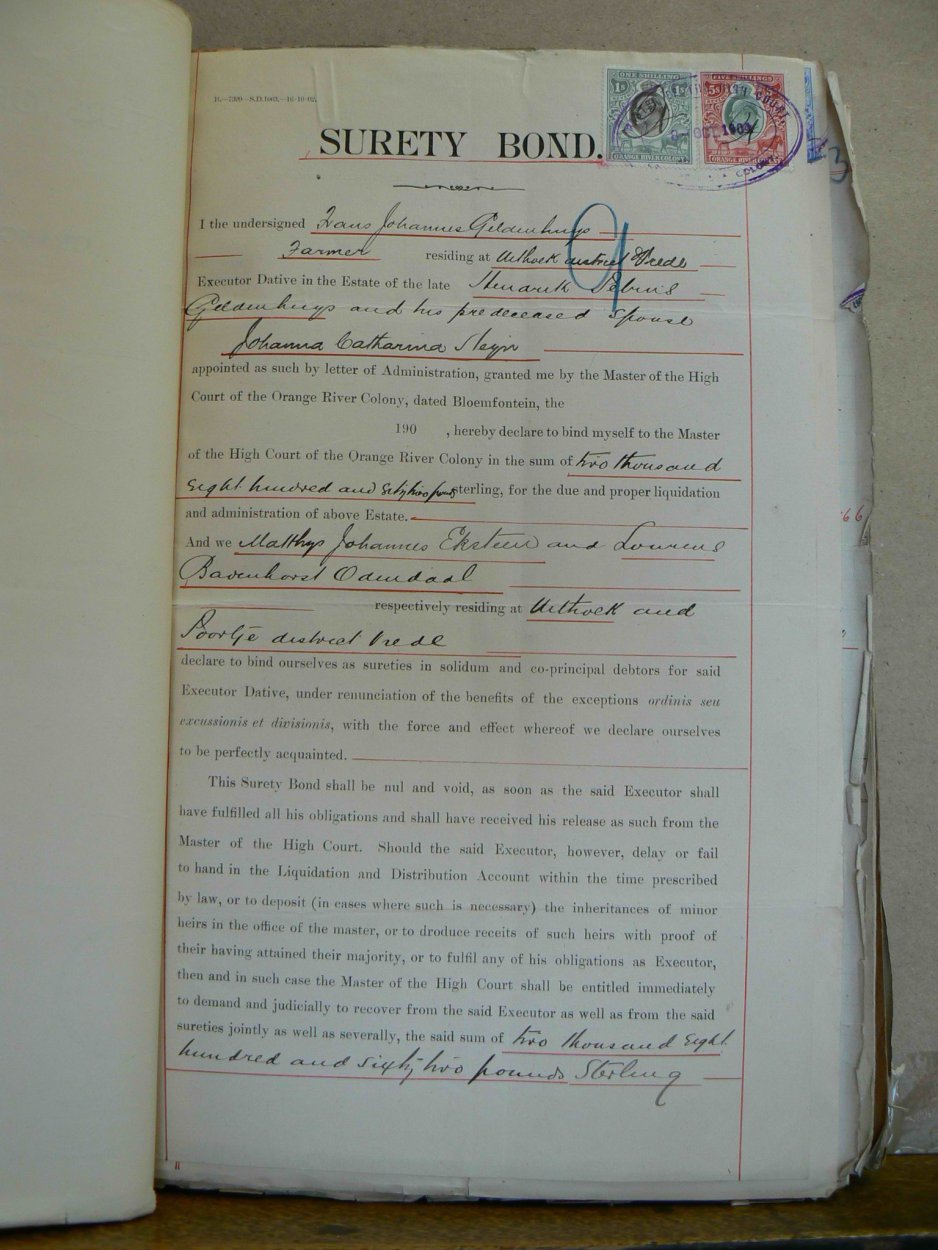 R.—7309—S.D.1663.—16-10-02.
ONE SHILLING
1s 1s
ORANGE RIVER COLONY
FIVE SHILLINGS
5s
ORANGE RIVER COLONY
OCT 1903
SURETY BOND.
I the undersigned Frans Johannes Geldenhuys
Farmer residing at Uithoek district Vrede
Executor Dative in the Estate of the late Hendrik
Geldenhuys and his predeceased Spouse
Johanna Catharina Steyn
appointed as such by letter of Administration, granted me by the Master of the High
Court of the Orange River Colony, dated Bloemfontein, the
190 , hereby declare to bind myself to the Master
of the High Court of the Orange River Colony in the sum of two thousand
eight hundred and sixty two pounds sterling, for the due and proper liquidation
and administration of above Estate.
And we Matthys Johannes Eksteen and Lourens
Badenhorst Odendaal
respectively residing at Uithoek and
Poortje district Vrede
declare to bind ourselves as sureties in solidum and co-principal debtors for said
Executor Dative, under renunciation of the benefits of the exceptions ordinis seu
excussionis et divisionis, with the force and effect whereof we declare ourselves
to be perfectly acquainted.
This Surety Bond shall be nul and void, as soon as the said Executor shall
have fulfilled all his obligations and shall have received his release as such from the
Master of the High Court. Should the said Executor, however, delay or fail
to hand in the Liquidation and Distribution Account within the time prescribed
by law, or to deposit (in cases where such is necessary) the inheritances of minor
heirs in the office of the master, or to droduce receits of such heirs with proof of
their having attained their majority, or to fulfil any of his obligations as Executor,
then and in such case the Master of the High Court shall be entitled immediately
to demand and judicially to recover from the said Executor as well as from the said
sureties jointly as well as severally, the said sum of two thousand eight
hundred and sixty two pounds Sterling